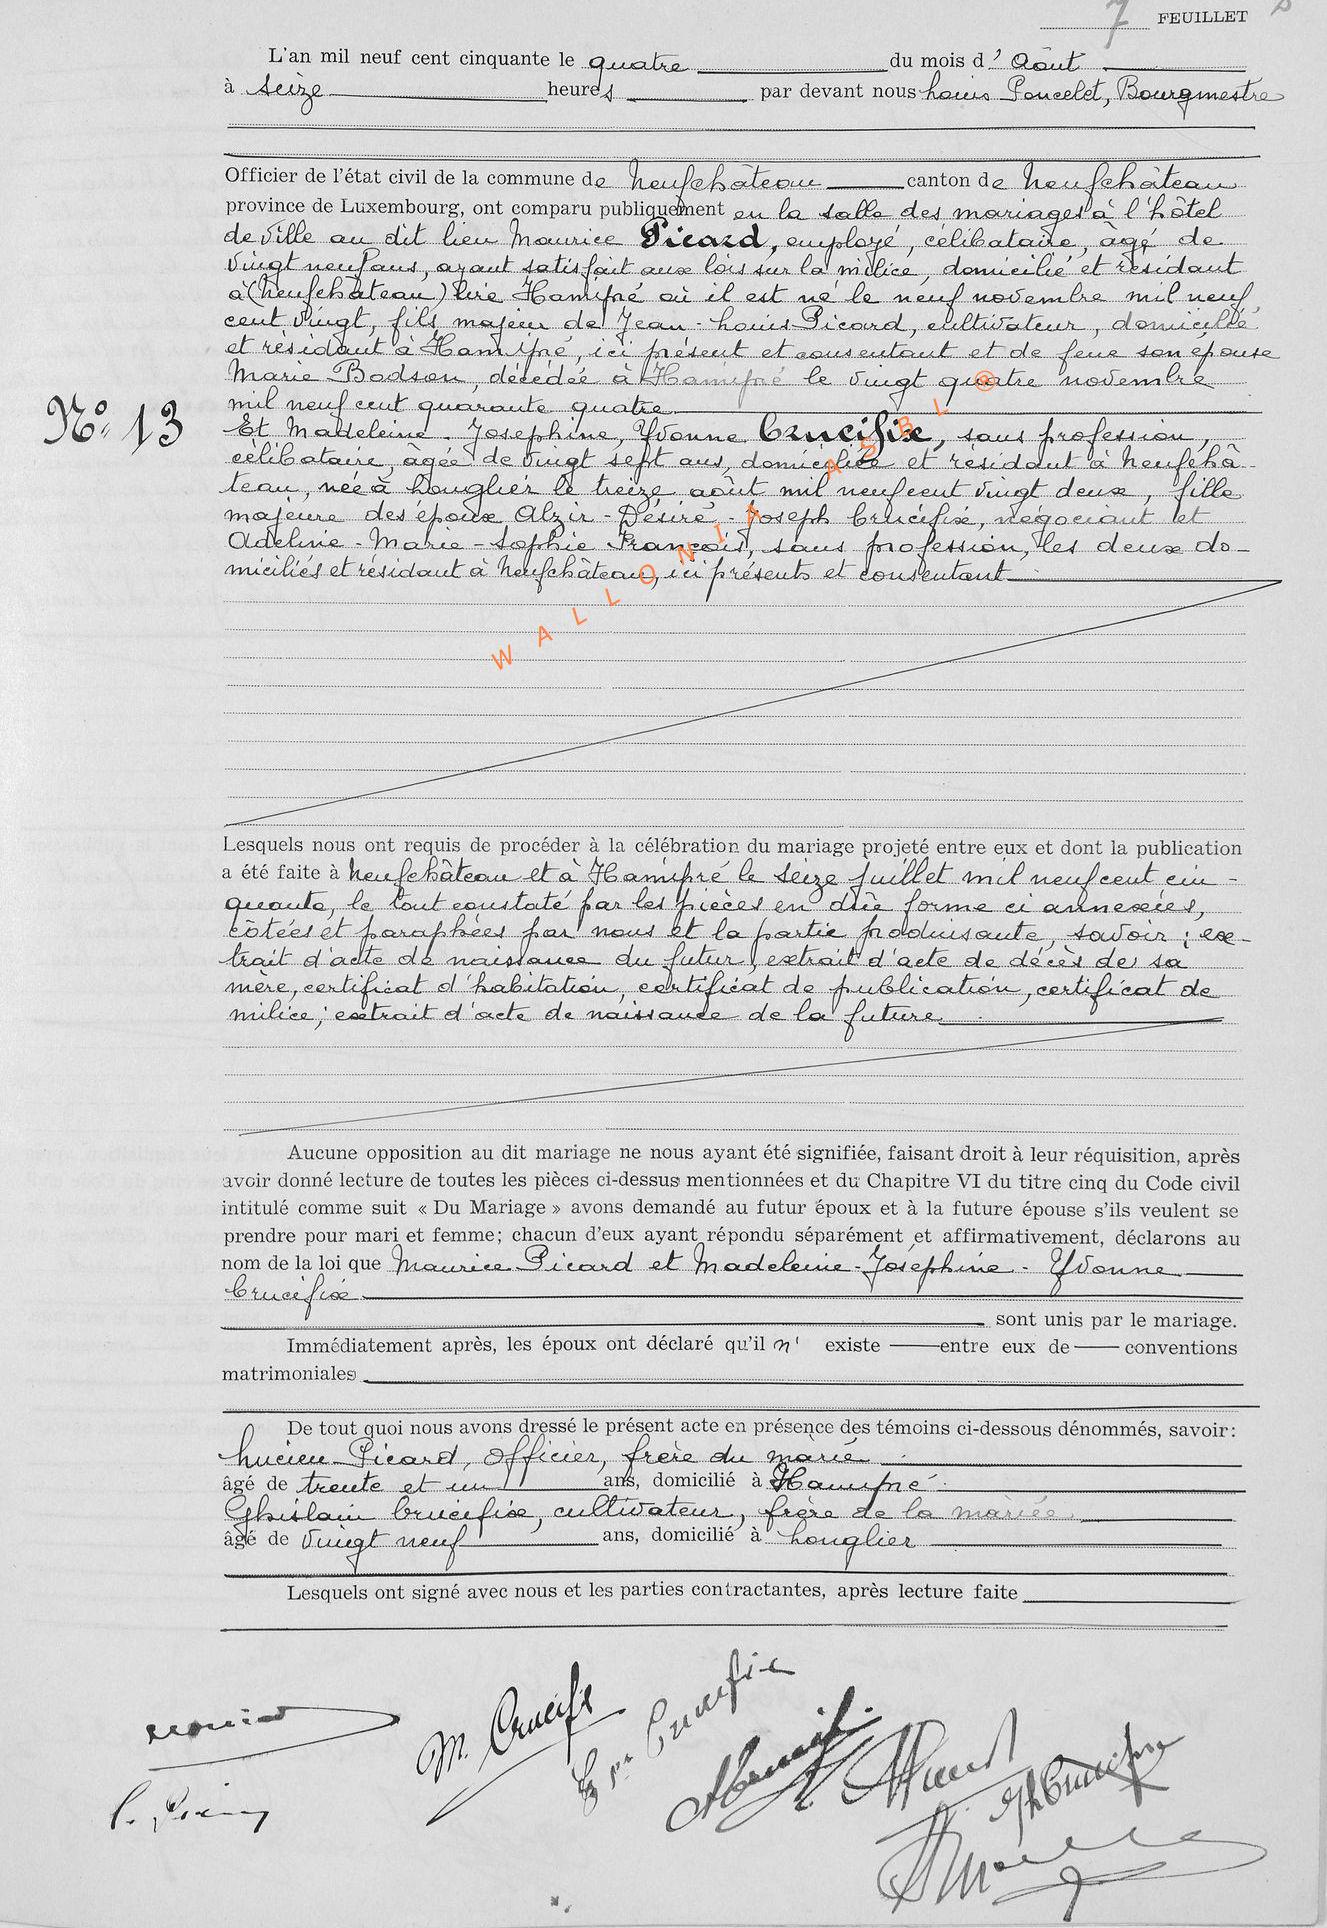 7 FEUILLET
L'an mil neuf cent cinquante le quatre du mois d' Août
à seize heures par devant nous Louis Poncelet, Bourgmestre
Officier de l'état civil de la commune de Neufchâteau canton de Neufchâteau
province de Luxembourg, ont comparu publiquement en la salle des mariages à l'hôtel
de ville au dit lieu Maurice Picard, employé, célibataire, âgé de
vingt neuf ans, ayant satisfait aux lois sur la milice, domicilié et résidant
à (Neufchâteau) lire Hamipré où il est né le neuf novembre mil neuf
cent vingt, fils majeur de Jean-Louis Picard, cultivateur, domicilié
et résidant à Hamipré, ici présent et consentant et de feue son épouse
Marie Bodson, décédée à Hamipré le vingt quatre novembre
mil neuf cent quarante quatre
N° 13
Et Madeleine-Josephine, Yvonne Crucifix, sans profession,
célibataire, agée de vingt sept ans, domiciliée et résidant à Neufchâ-
teau, née à Longlier le treize août mil neuf cent vingt deux, fille
majeure des époux Alzir-Désiré-Joseph Crucifix, négociant et
Adeline-Marie-Sophie François, sans profession, les deux do-
miciliés et résidant à Neufchâteau, ici présents et consentant
WALLONIA ASBL ®
Lesquels nous ont requis de procéder à la célébration du mariage projeté entre eux et dont la publication
a été faite à Neufchâteau et à Hamipré le seize juillet mil neuf cent cin-
quante, le tout constaté par les pièces en dûe forme ci annexées,
côtées et paraphées par nous et la partie produisante, savoir : ex-
trait d'acte de naissance du futur, extrait d'acte de décès de sa
mère, certificat d'habitation, certificat de publication, certificat de
milice; extrait d'acte de naissance de la future
Aucune opposition au dit mariage ne nous ayant été signifiée, faisant droit à leur réquisition, après
avoir donné lecture de toutes les pièces ci-dessus mentionnées et du Chapitre VI du titre cinq du Code civil
intitulé comme suit « Du Mariage » avons demandé au futur époux et à la future épouse s'ils veulent se
prendre pour mari et femme; chacun d'eux ayant répondu séparément et affirmativement, déclarons au
nom de la loi que Maurice Picard et Madeleine-Joséphine-Yvonne
Crucifix
sont unis par le mariage.
Immédiatement après, les époux ont déclaré qu'il n' existe entre eux de conventions
matrimoniales
De tout quoi nous avons dressé le présent acte en présence des témoins ci-dessous dénommés, savoir:
Lucien Picard, officier, frère du marié
âgé de trente et un ans, domicilié à Hamipré
Ghislain Crucifix, cultivateur, frère de la mariée
âgé de vingt neuf ans, domicilié à Longlier
Lesquels ont signé avec nous et les parties contractantes, après lecture faite
M. Crucifix
Crucifix
Gh Crucifix